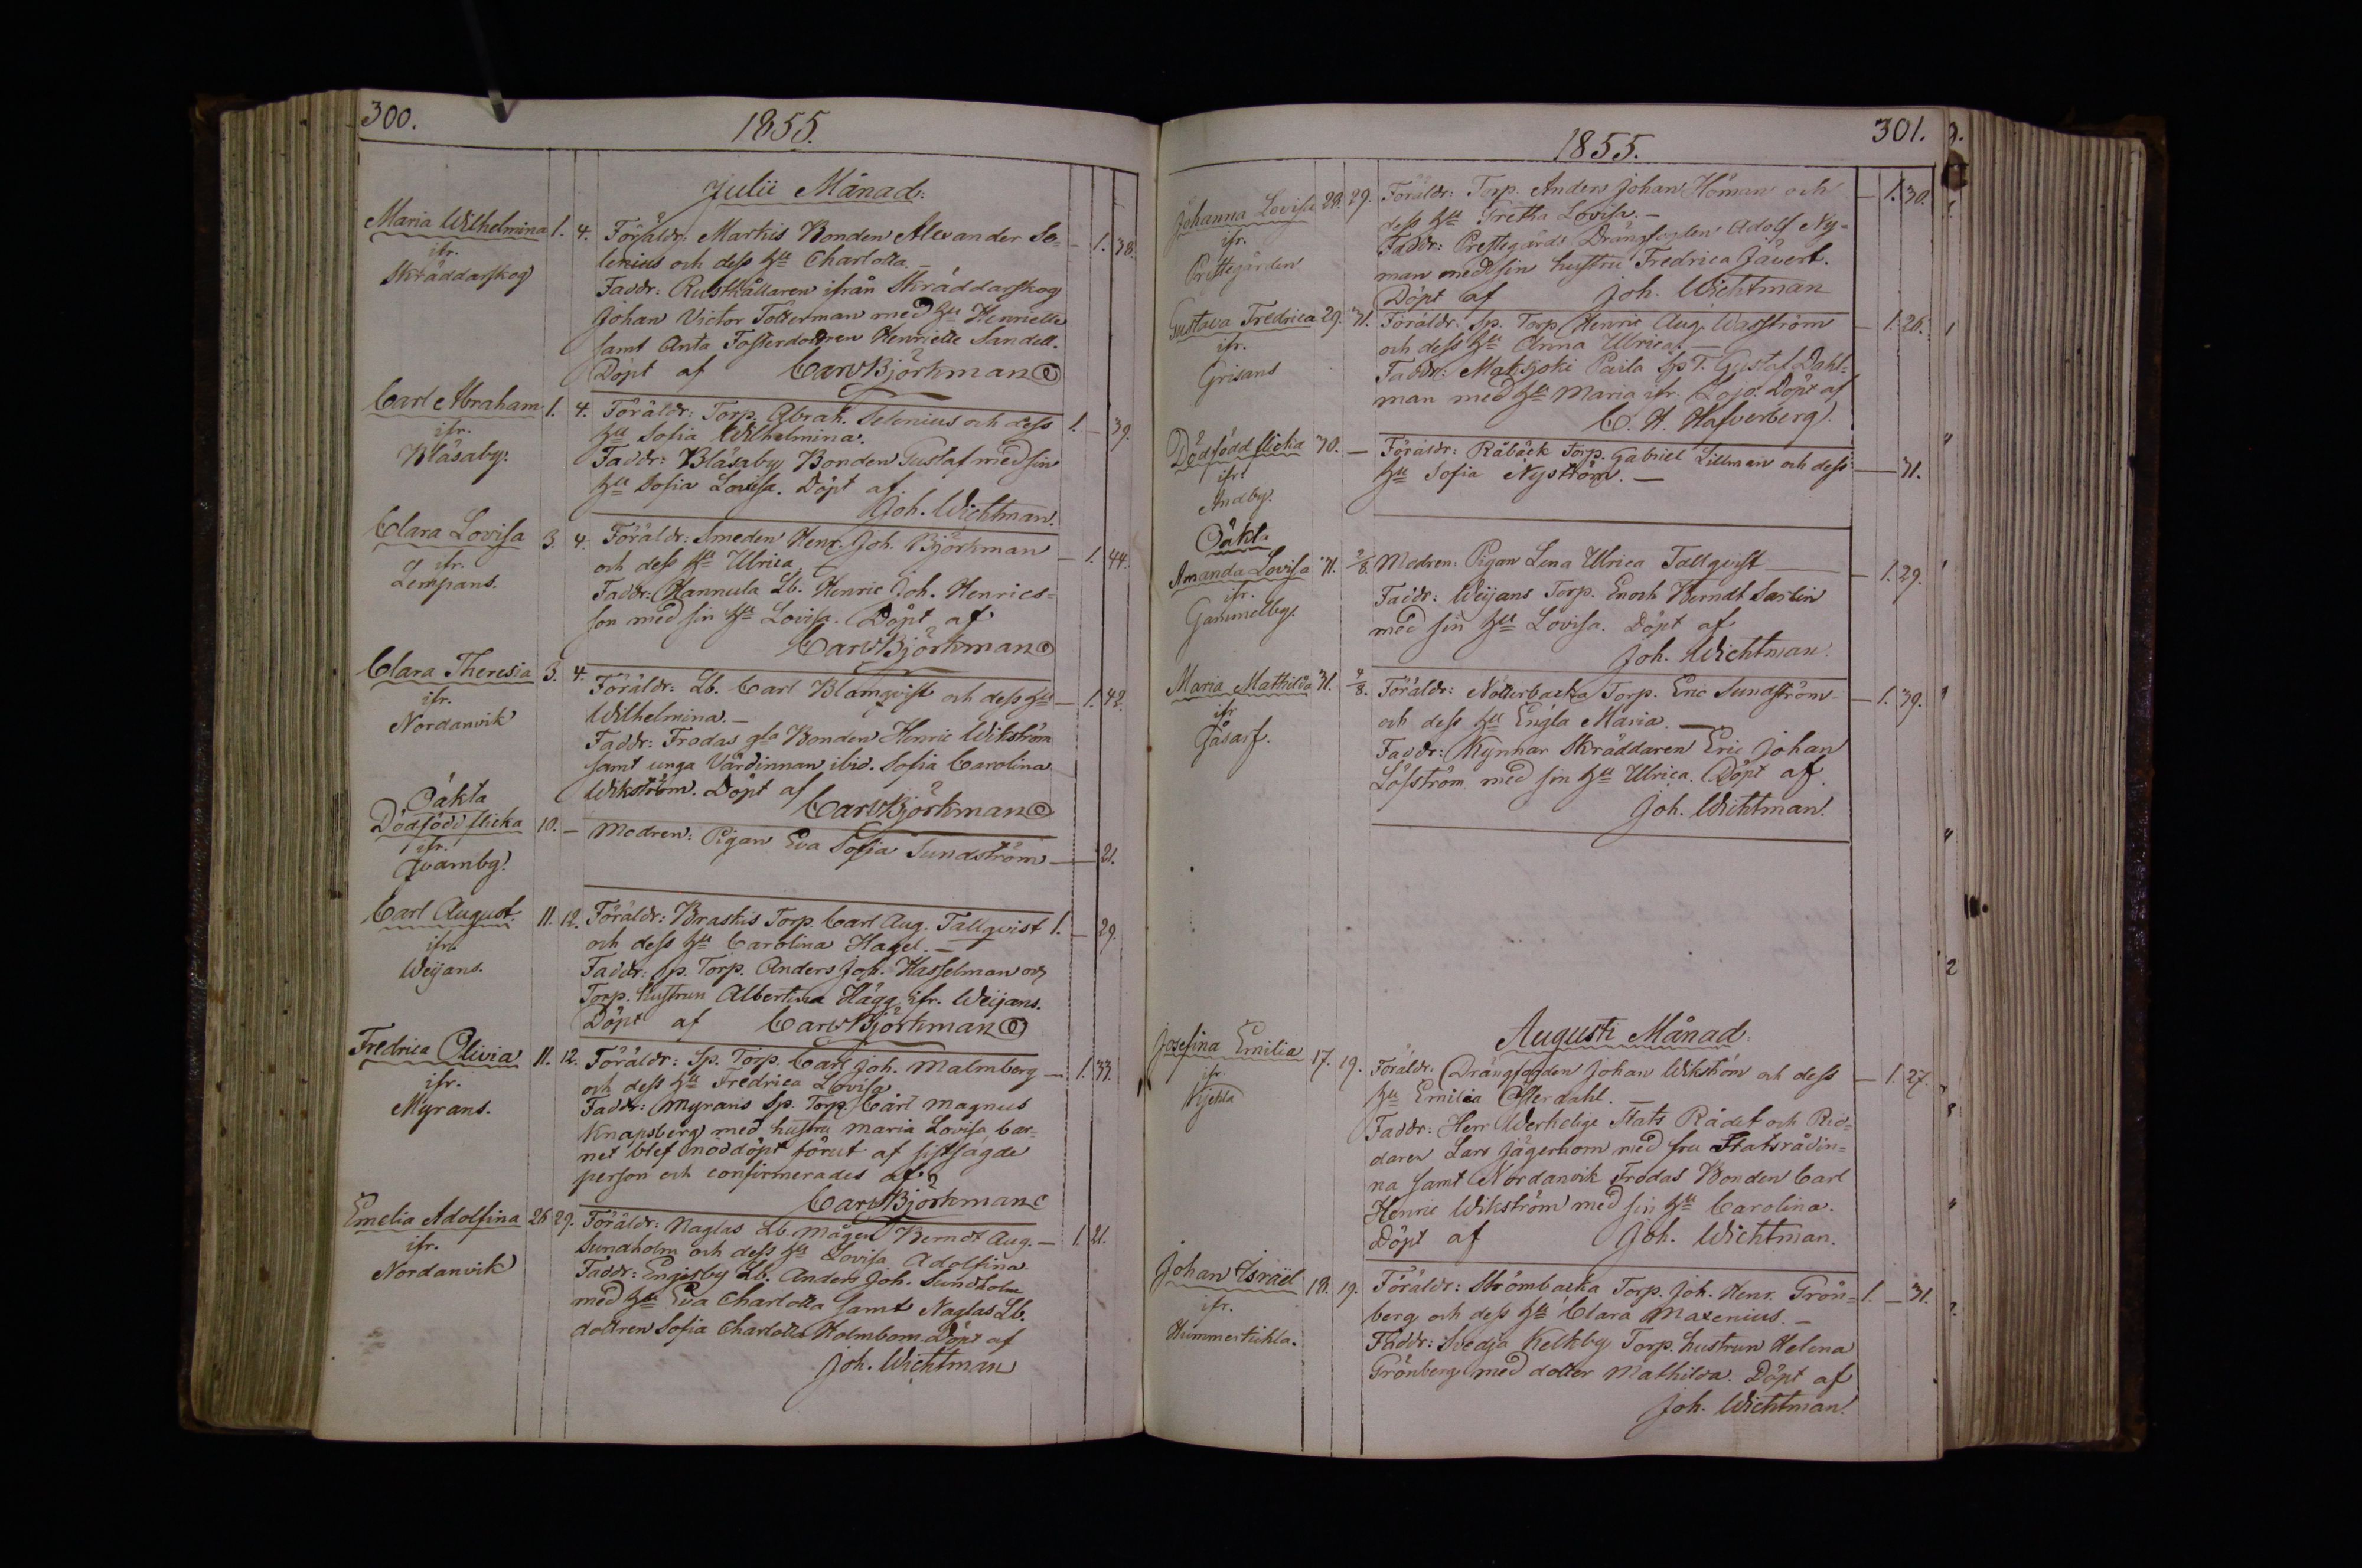 300.
1855.
Julii Månad.
Maria Wilhelmina 1. 4. Föräldr: Markis Bonden Alexander Se= — 1. 38.
ifr.
Skräddarskog
lenius och dess hu Charlotta. —
Faddr: Rusthållaren ifrån Skräddarskog
Johan Victor Totterman med hu Henriette
samt Anta Fosterdottren Henriette Sandell.
Döpt af Carl Björkman
Carl Abraham 1. 4. Föräldr: Torp. Abrah. Selenius och dess 1. — 39.
ifr.
Bläsaby.
hu Sofia Wilhelmina.
Faddr: Bläsaby Bonden Gustaf med sin
hu Sofia Lovisa. Döpt af
Joh. Wichtman.
Clara Lovisa 3. 4. Föräldr: Smeden Henr. Joh. Björkman — 1. 44.
ifr.
Lempans.
och dess hu Ulrica
Faddr: Hannula Lb. Henric Joh. Henrics=
son med sin hu Lovisa. Döpt af
Carl Björkman
Clara Theresia 3. 4. Föräldr: Lb. Carl Blamqvist och dess hu — 1. 42.
ifr.
Nordanvik
Wilhelmina. —
Faddr: Frodas gla Bonden Henric Wikström
samt unga Värdinnan ibid. Sofia Carolina
Wikström. Döpt af
Carl Björkman
Oäkta
Dödfödd flicka 10. — Modren: Pigan Eva Sofia Sundström — 21.
ifr.
Qvarnby.
Carl August. 11. 12. Föräldr: Braskis Torp. Carl Aug. Tallqvist 1. — 29.
ifr.
Weijans.
och dess hu Carolina Hagel. —
Faddr: Sp. Torp. Anders Joh. Hasselman och
Torp. hustrun Albertina Hägg ifr. Weijans.
Döpt af Carl Björkman
Fredrica Olivia 11. 12. Föräldr: Sp. Torp. Carl Joh. Malmberg — 1. 33.
ifr.
Myrans.
och dess hu Fredrica Lovisa
Faddr: Myrans Sp. Torp. Carl Magnus
Knapsberg med hustru Maria Lovisa, bar=
net blef nöddöpt förut af sistsagde
person och confirmerades af
Carl Björkman
Emelia Adolfina 26 29. Föräldr: Naglas Lb. mågen Berndt Aug. — 1. 21.
ifr.
Nordanvik
Sundholm och dess hu Lovisa Adolfina
Faddr: Engisby Lb. Anders Joh. Sundholm
med hu Eva Charlotta samt Naglas Lb.
dottren Sofia Charlotta Holmbom. Döpt af
Joh. Wichtman
301.
1855.
Johanna Lovisa 28. 29. Föräldr: Torp. Anders Johan Höman och — 1. 30.
ifr.
Prestegården
dess hu Gretha Lovisa. —
Faddr: Prestegårds Drängfogden Adolf Ny=
man med sin hustru Fredrica Jävert.
Döpt af Joh. Wichtman
Gustava Fredrica 29. 31. Föräldr: Sp. Torp Henric Aug. Wasström — 1. 26.
ifr.
Grisans
och dess hu Anna Ulrica. —
Faddr: Maksjoki Paila Sp T. Gustaf Dahl=
man med hu Maria ifr. Lojo. Döpt af
C. H. Hafverberg.
Dödfödd flicka 30. — Föräldr: Råbäck Torp. Gabriel Lillman och dess — 31.
ifr.
Andby.
hu Sofia Nyström. —
Oäkta
Amanda Lovisa 31. 2/8. Modren: Pigan Lena Ulrica Tallqvist — 1. 29.
ifr.
Gammelby.
Faddr: Weijans Torp. Enoch Berndt Sarlin
med sin hu Lovisa. Döpt af
Joh. Wichtman.
Maria Mathilda 31. 4/8. Föräldr: Nötterbacka Torp. Eric Sundström — 1. 39.
ifr
Gåsarf.
och dess hu Engla Maria. —
Faddr: Kynnar Skräddaren Eric Johan
Löfström med sin hu Ulrica. Döpt af
Joh. Wichtman.
Augusti Månad.
Josefina Emilia 17. 19. Föräldr: Drängfogden Johan Wikström och dess — 1. 27.
ifr.
Kjehla
hu Emilia Österdahl. —
Faddr: Herr Werkelige Stats Rådet och Rid=
daren Lars Jägerhorn med fru Statsrådin=
na samt Nordanvik Frodas Bonden Carl
Henric Wikström med sin hu Carolina.
Döpt af Joh. Wichtman.
Johan Israël 18. 19. Föräldr: Strömbacka Torp. Joh. Henr. Grön= 1. — 31.
ifr.
Hummerkihla.
berg och dess hu Clara Maxenius. —
Faddr: Svedja Kelkby Torp. hustrun Helena
Grönberg med dotter Mathilda. Döpt af
Joh. Wichtman.